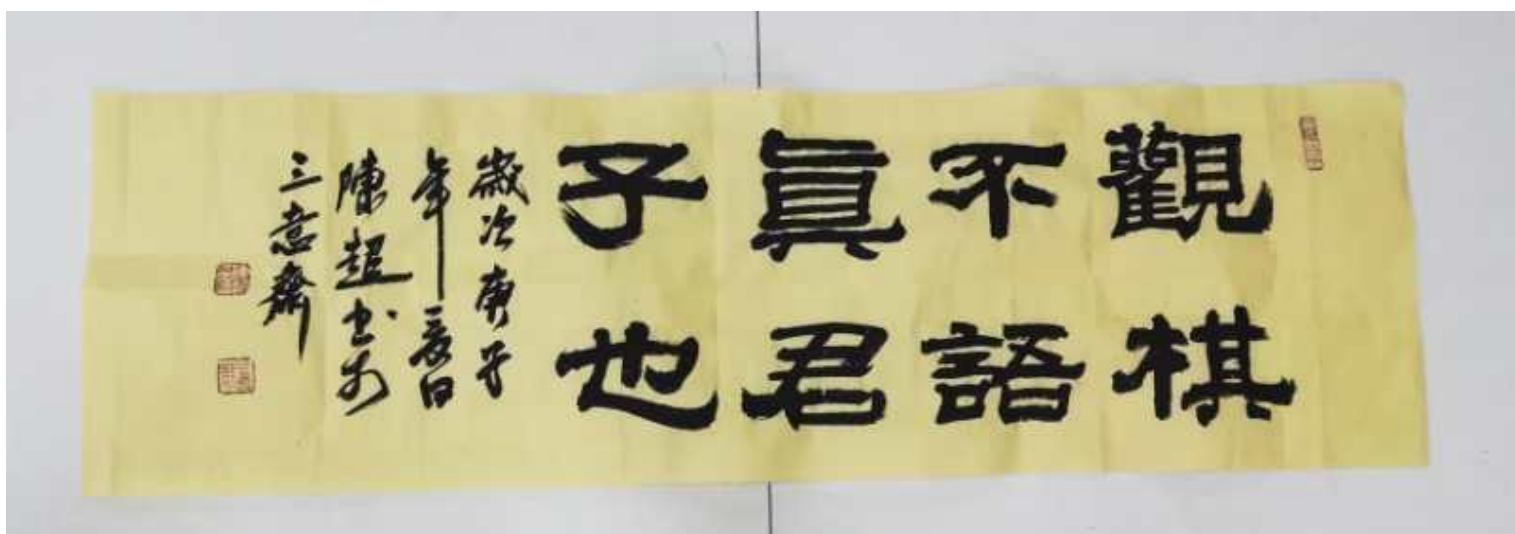 觀棋
不語
真君
子也
歲次庚子
年夏日
陳超書於
三意齋